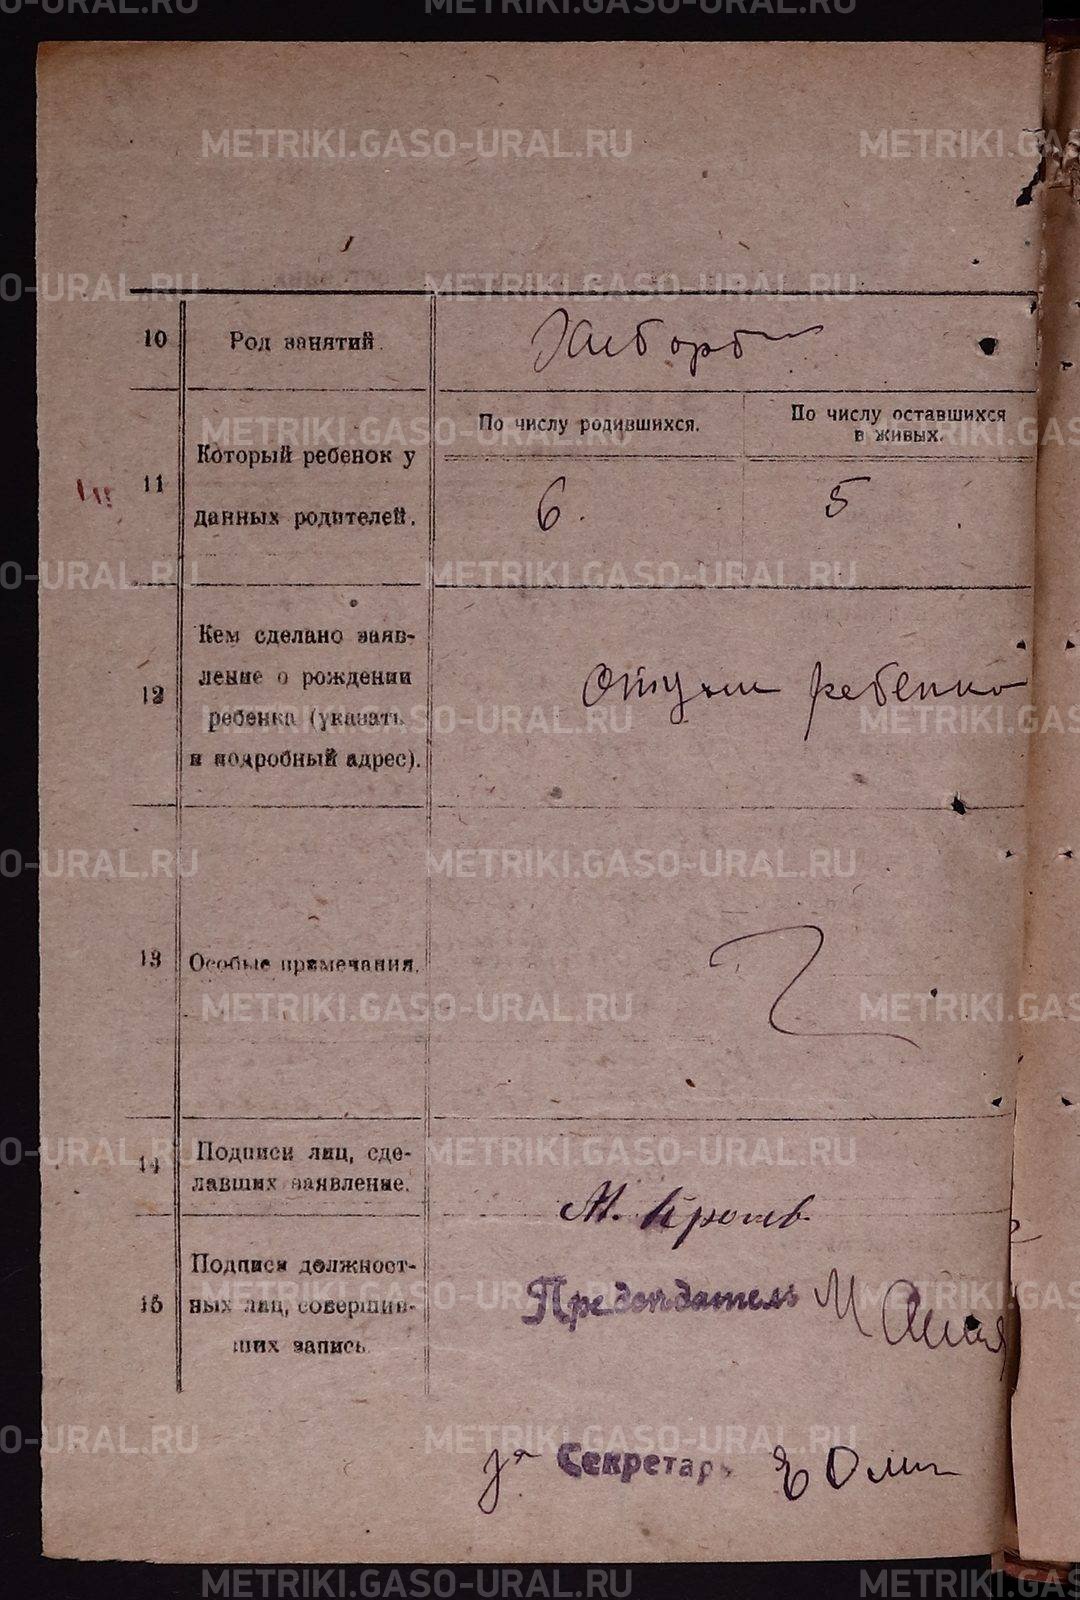 10 Род занятий. Хлебороб
11 Который ребенок у
данных родителей.
По числу родившихся.
По числу оставшихся
в живых.
6. 5
12 Кем сделано заяв-
ление о рождении
ребенка (указать
и подробный адрес).
Отцом ребенка
13 Особые примечания.
14 Подписи лиц, сде-
лавших заявление.
М.
15 Подписи должност-
ных лиц, совершив-
ших запись.
Председатель М
за Секретарь
METRIKI.GASO-URAL.RU